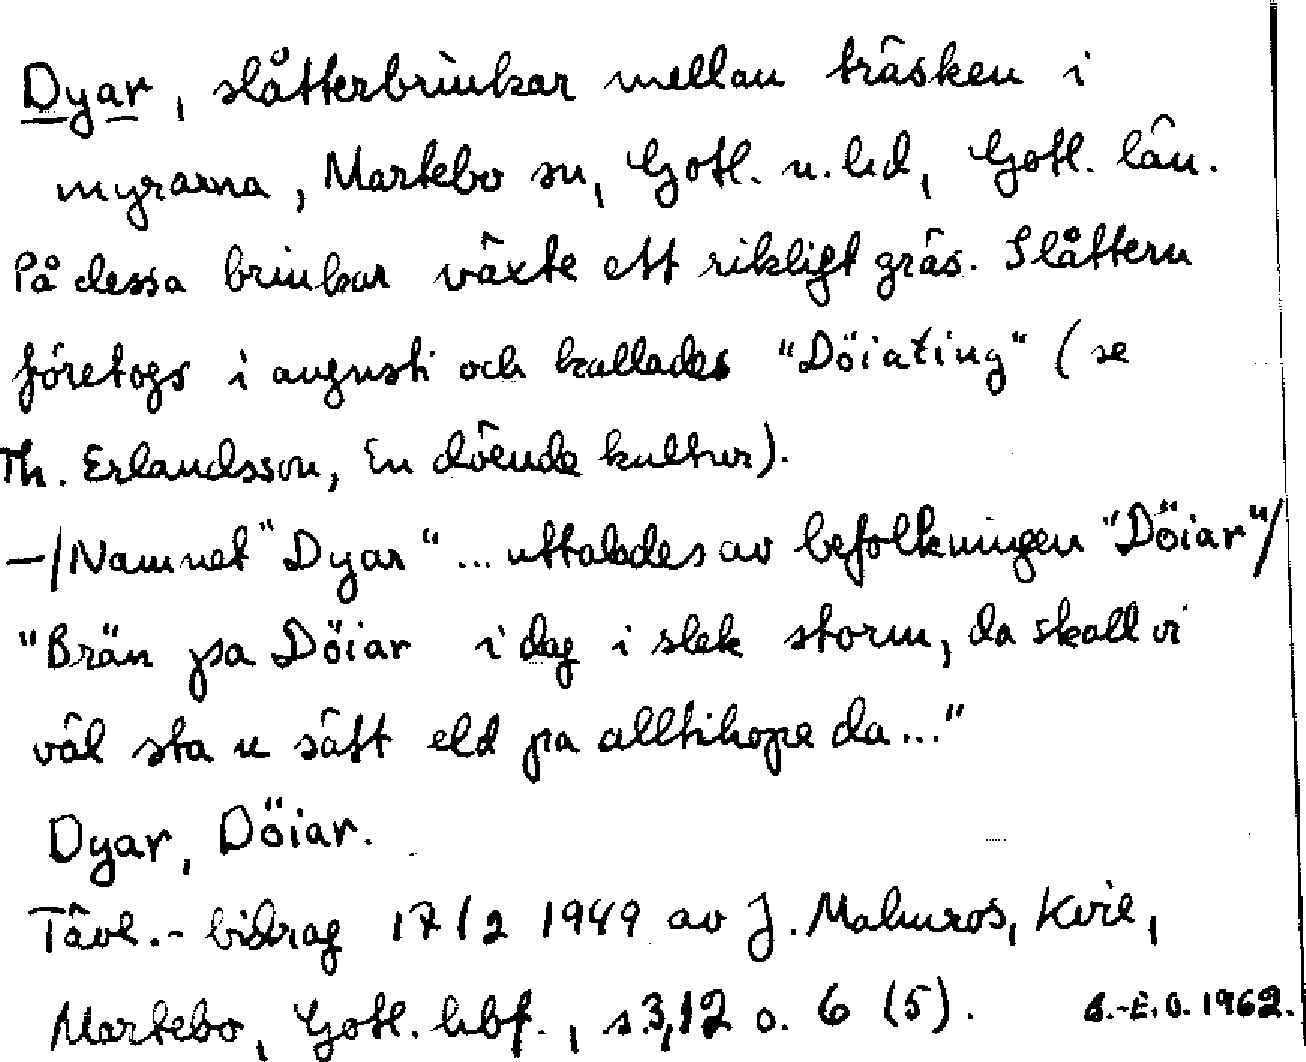 Dyar, slåtterbrinkar mellan träsken i
myrarna, Martebo sn, Gotl. n. hd, Gotl. län.
På dessa brinkar växte ett rikligt gräs. Slåttern
företogs i augusti och kallades "Döiating" (se
Th. Erlandsson, En döende kultur).
-/Namnet "Dyar" ... uttalades av befolkningen "Döiar"/
"Brän pa Döiar i dag i slek storm, da skall vi
väl sta u sätt eld pa alltihope da..."
Dyar, Döiar.
Tävl.- bidrag 17/2 1949 av J. Malmros, Kvie,
Martebo, Gotl. hbf., s 3,12 o. 6 (5). B.-E.O. 1962.